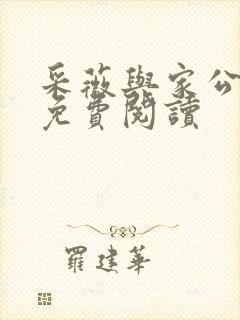 采薇與家公
免費閱讀
羅建華